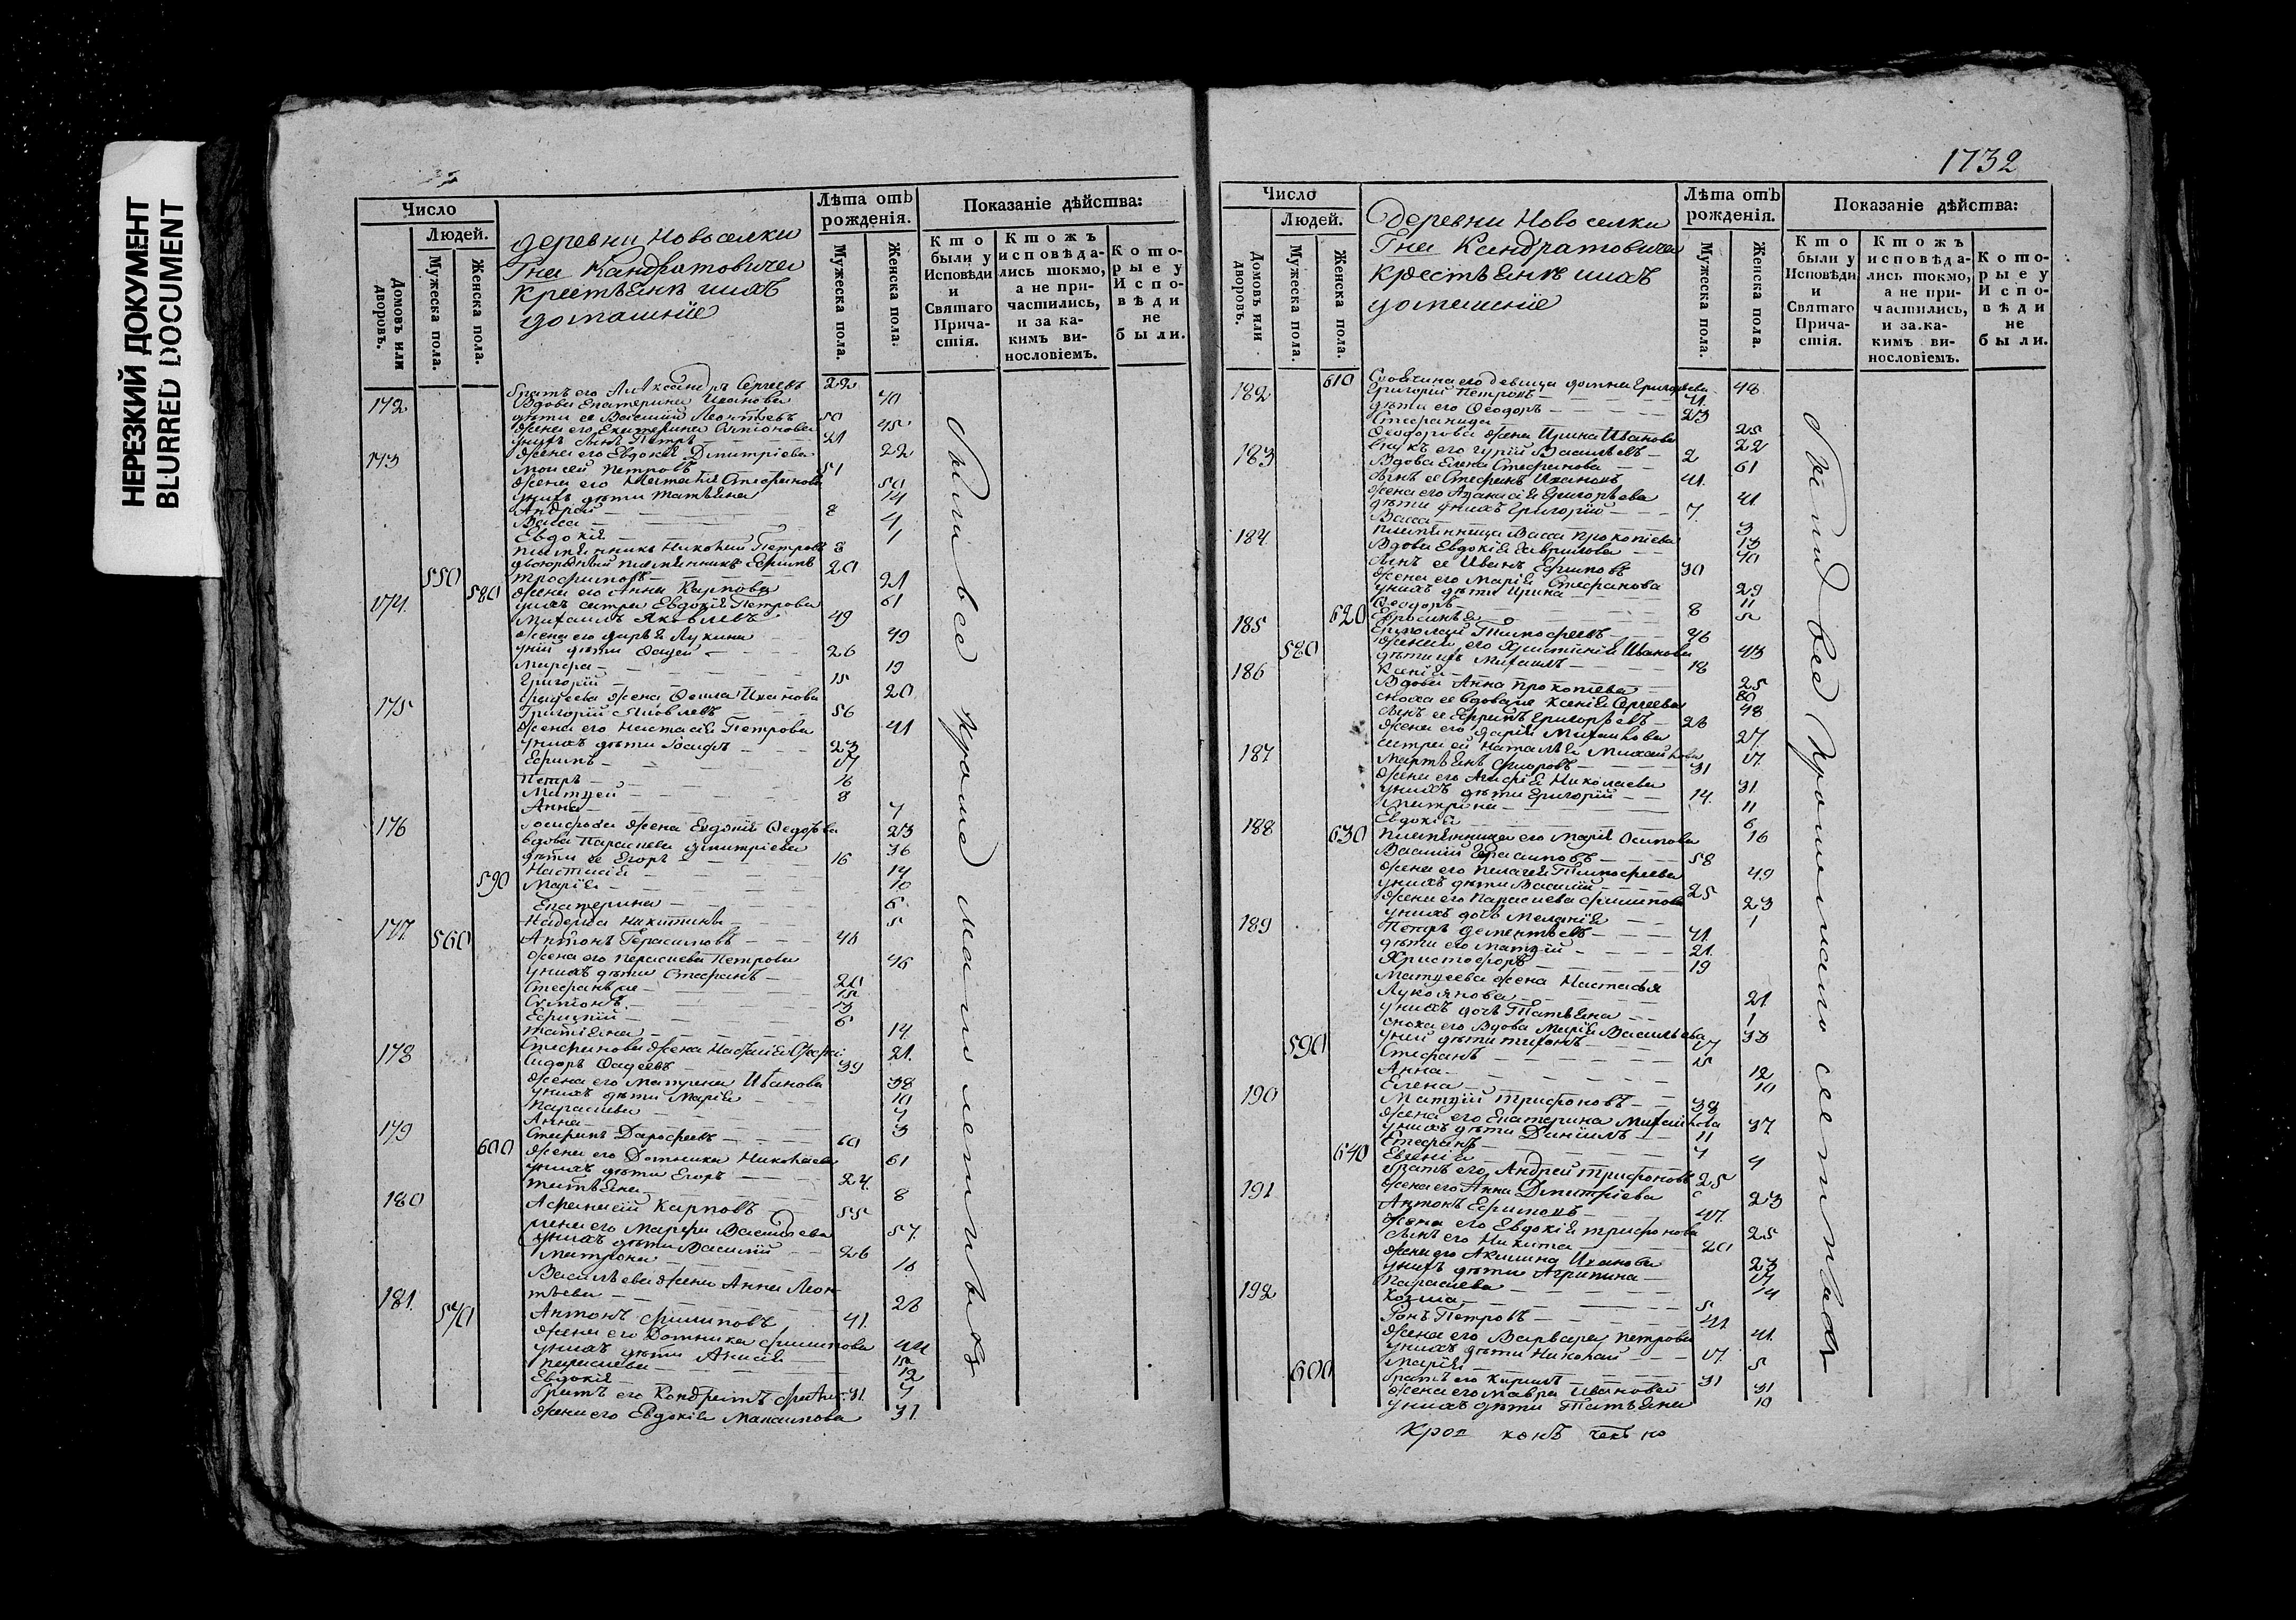 НЕРЕЗКИЙ ДОКУМЕНТ
BLURRED DOCUMENT
Число
Людей.
Домовъ или дворовъ.
Мужеска пола.
Женска пола.
деревни Новоселки
Гна Кандратовича
крестьяне ихъ
домашніе
Лѣта отъ рожденія.
Мужеска пола.
Женска пола.
Показаніе дѣйства:
Кто были у Исповѣди и Святаго Причастія.
Ктожъ исповѣдались токмо, а не причастились, и за какимъ винословіемъ.
Которые у Исповѣди не были.
братъ его Алѣксандръ Сергеевъ 22
172 Вдова Екатерина Иванова 70
дѣти ее Василий Леонтьевъ 50
жена его Екатерина 45
сынъ Петръ 21
жена его Евдокія Дмитріева 22
173 Моисей Петровъ 51
жена его Наталія Стефанова 50
унихъ дѣти Татьяна 14
Андрей 8
Васса 4
Евдокія 1
племянникъ Николай Петровъ 8
двоюродный племянникъ Ефимъ
550 Трофимовъ 20
580 жена его Анна Карпова 21
сестра Евдокія Петрова 61
174 Михаилъ Яковлевъ 49
жена его Дарья Лукина 49
дѣти Фадей 26
Марфа 19
Григорій 15
Фадеева жена Фекла Иванова 20
175 Григорій Яковлевъ 56
жена его Настасія Петрова 41
унихъ дѣти Іосифъ 23
Ефимъ 17
Петръ 16
Матвей 8
Анна 7
Іосифова жена Евдокія Федорова 23
176 вдова Параскева Дмитріева 36
дѣти ее Егоръ 16
Настасія 14
590 Марія 10
Екатерина 6
Надежда Никитина 5
177 560 Антонъ Герасимовъ 48
жена его Параскева Петрова 46
унихъ дѣти Стефанъ 20
Стефанъ же 15
Симіонъ 13
6
Татіяна 14
Стефанова жена 21
178 Сидоръ Фадеевъ 39
жена его Матрена Иванова 38
унихъ дѣти Марія 10
Параскева 7
Анна 3
179 Стефанъ Дарофеевъ 60
600 жена его Домника Николаева 61
унихъ дѣти Егоръ 24
Татьяна 8
180 Афанасій Карповъ 55
жена его Марфа Васильева 57
унихъ дѣти Василій 26
Матрона 18
Васильева жена Анна Леон-
тьева 26
181 570 Антонъ Филиповъ 41
жена его Домника Филипова 44
унихъ дѣти 15
Параскева 12
Евдокія 7
братъ его Кондратъ 31
жена его Евдокія Максимова 31
были все кроме малолетныхъ
1732
Число
Людей.
Домовъ или дворовъ.
Мужеска пола.
Женска пола.
деревни Новоселки
Гна Кандратовича
крестьяне ихъ
домашніе
Лѣта отъ рожденія.
Мужеска пола.
Женска пола.
Показаніе дѣйства:
Кто были у Исповѣди и Святаго Причастія.
Ктожъ исповѣдались токмо, а не причастились, и за какимъ винословіемъ.
Которые у Исповѣди не были.
610 его девица Григорьева 48
182 Григорій Петровъ 41
дѣти его Феодоръ 23
Стефанида 25
Феодорова жена Ирина Иванова 22
внукъ его Гурій Васильевъ 2
183 Вдова Елена Стефанова 61
сынъ ее Стефанъ Ивановъ 41
жена его Афанасія Григорьева 41
дѣти унихъ Григорій 7
Васса 3
племянница Васса Прокопіева 13
184 Вдова Евдокія Гаврилова 70
сынъ ее Иванъ Ефимовъ 30
жена его Марія Стефанова 29
унихъ дѣти Ирина 11
Феодоръ 8
620 Ефросинья
185 Ермолай Тимофеевъ 46
580 жена его Христинія Иванова 43
дѣти ихъ Михаилъ 18
Ксенія 25
186 Вдова Анна Прокопіева 80
сноха ее вдова же Ксенія Сергеева 48
сынъ ее Ефремъ Григорьевъ 26
жена его Дарія Михайлова 27
сестра ей Наталья Михайлова 17
187 Мартьянъ Филиповъ 31
жена его Агафія Николаева 31
унихъ дѣти Григорій 14
Матрона 11
Евдокія 6
630 племянница его Марія Осипова 16
188 Василій Герасимовъ 58
жена его Пелагея Тимофеева 49
унихъ дѣти Василій 25
жена его Параскева Филипова 23
унихъ дочь Меланія 1
189 Петръ Дементьевъ 41
дѣти его Матвій 21
Христофоръ 19
Матвеева жена Настасья
Лукоянова 21
унихъ дочь Татьяна 1
сноха его Вдова Марія Васильева 33
590 уней дѣти Тихонъ 17
Стефанъ 15
Анна 12
Елена 10
190 Матвій Трифоновъ 38
жена его Екатерина Михайлова 37
унихъ дѣти Даниилъ 11
Стефанъ 7
640 Евгенія 4
братъ его Андрей Трифоновъ 25
жена его Анна Дмитріева 23
191 Антонъ Ефимовъ 47
жена его Евдокія Трифонова 25
сынъ его Никита 20
жена его Акилина Иванова 23
унихъ дѣти Агрипина 17
Параскева 14
Козма 5
192 Романъ Петровъ 44
жена его Варвара Петрова 41
унихъ дѣти Николай 17
Марія 5
600 братъ его Кирилъ 31
жена его Мавра Иванова 31
унихъ дѣти Татьяна 10
были все кроме малолетныхъ